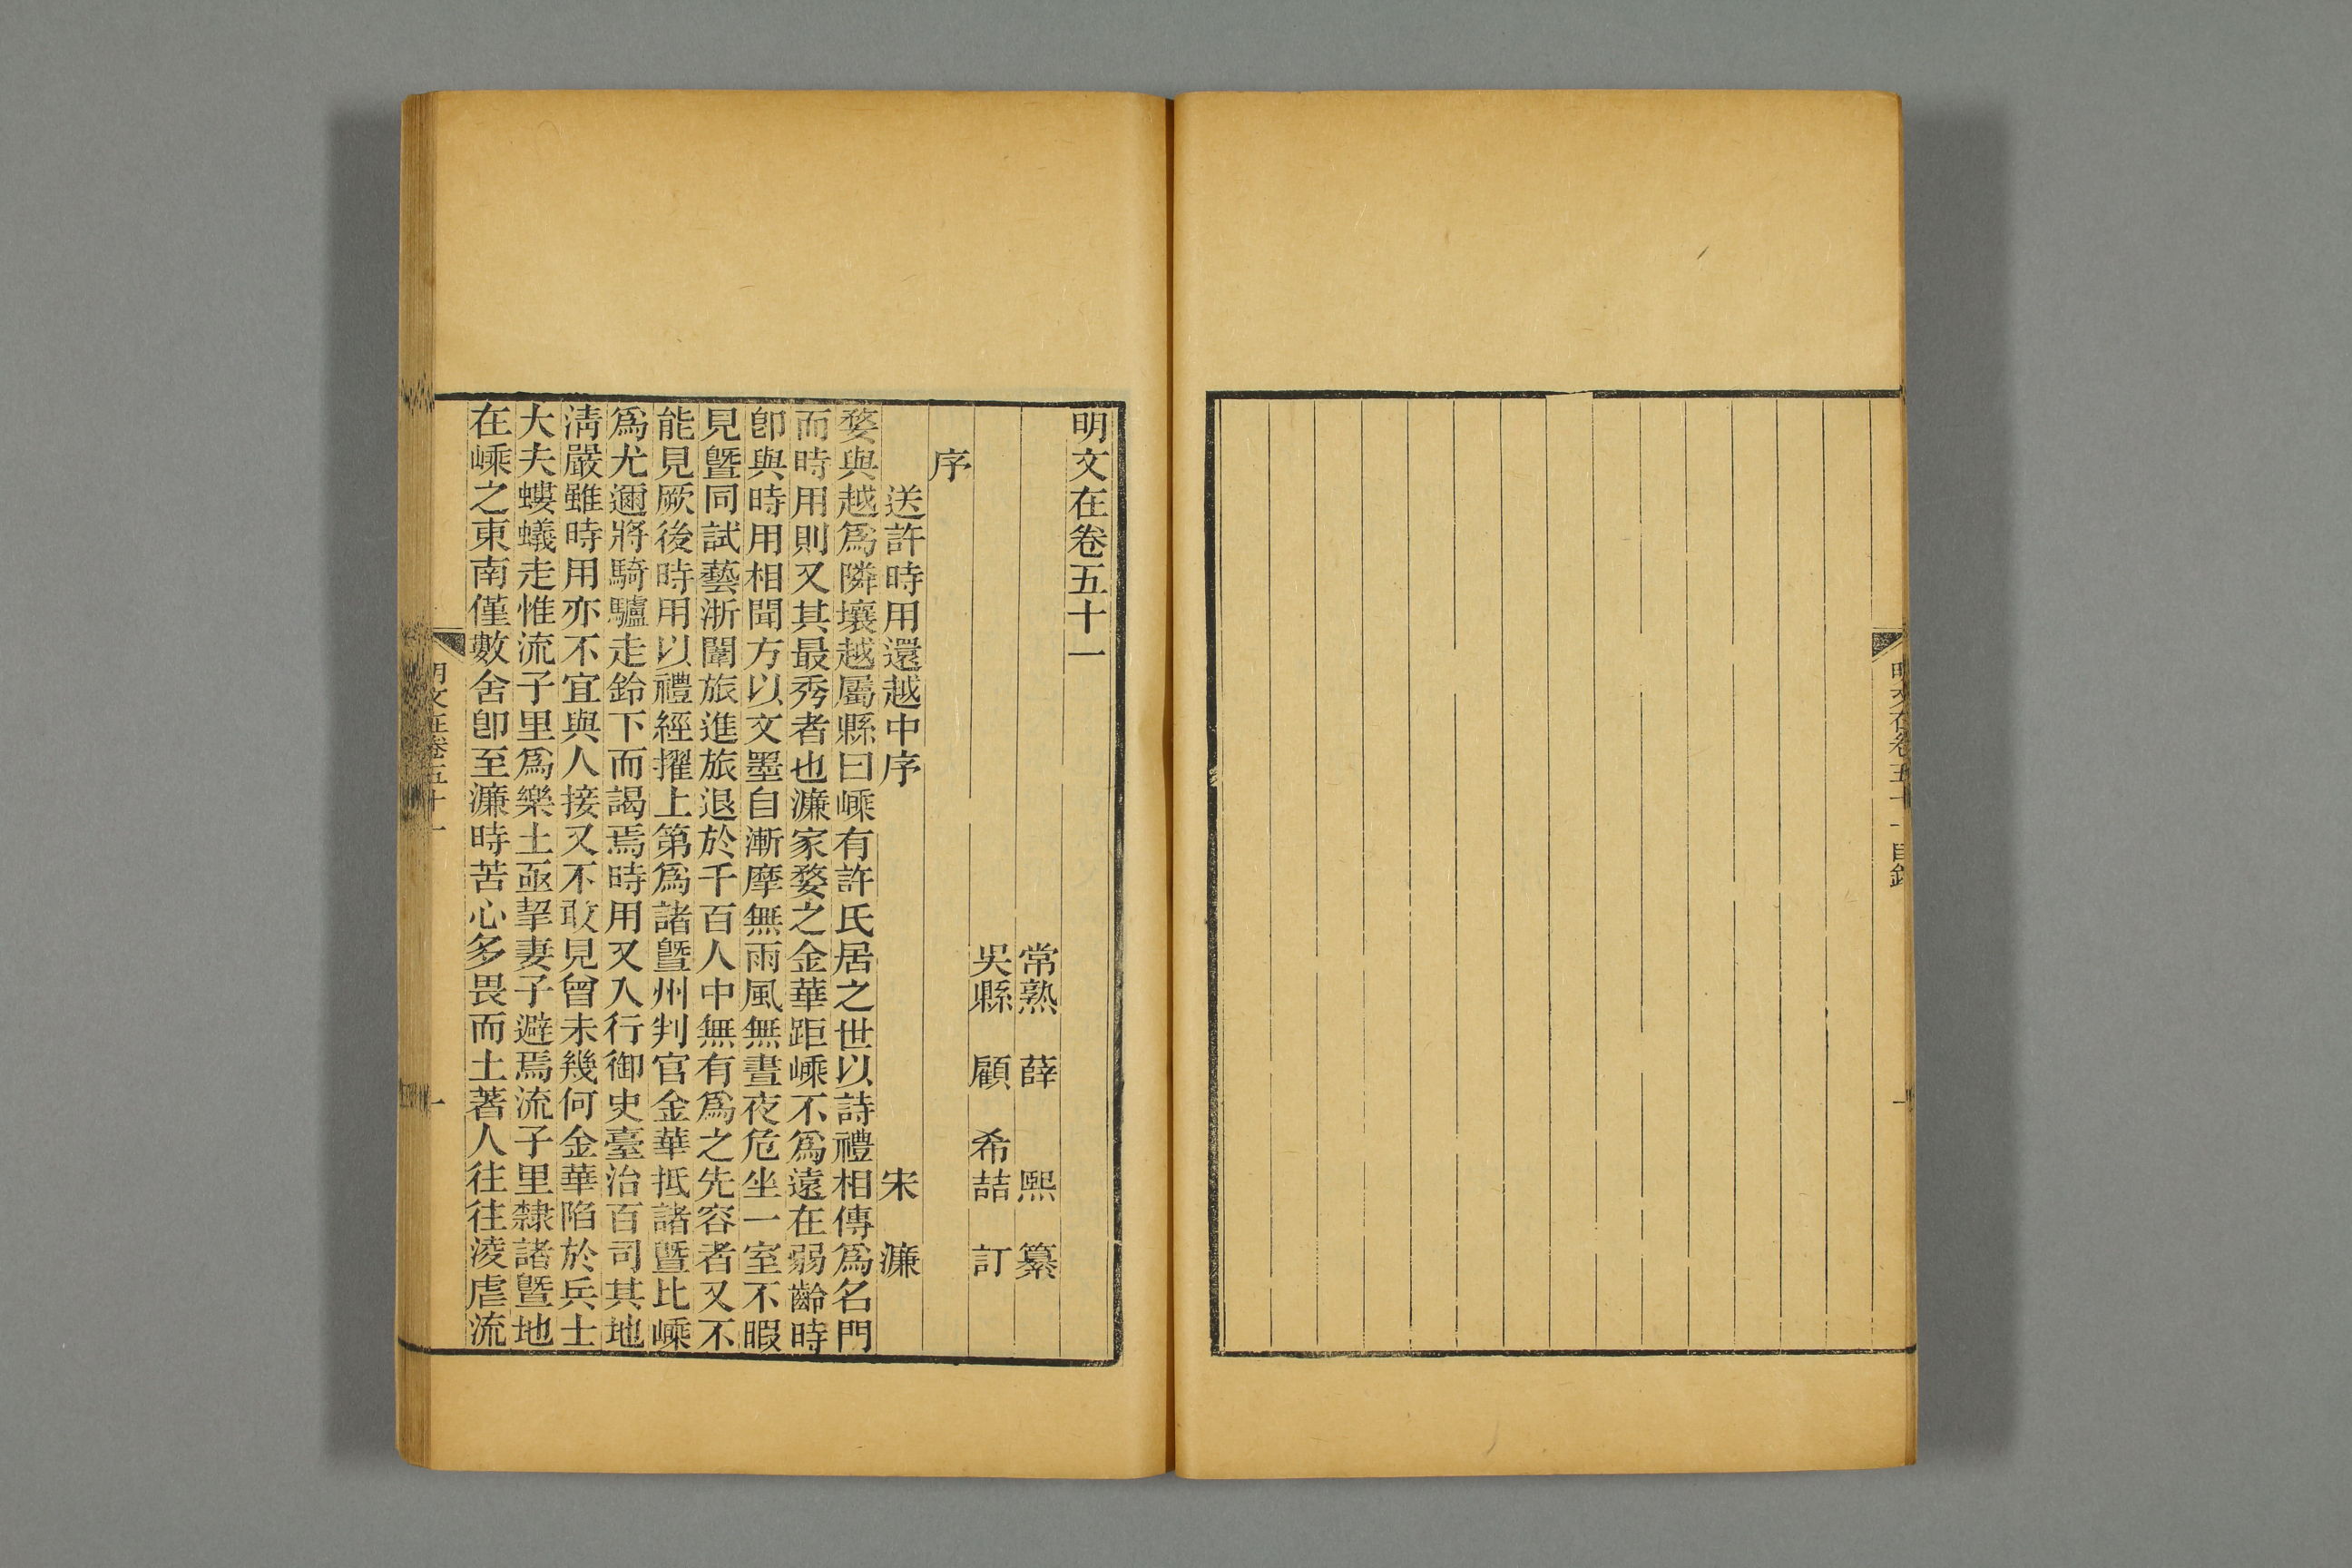 明文在卷五十一目錄
一
明文在卷五十一
常熟 薛 熙 纂
吳縣 顧 希喆 訂
序
送許時用還越中序 宋 濂
婺與越爲隣壤越屬縣曰嵊有許氏居之世以詩禮相傳爲名門
而時用則又其最秀者也濂家婺之金華距嵊不爲遠在弱齡時
卽與時用相聞方以文墨自漸摩無雨風無晝夜危坐一室不暇
見曁同試藝浙闈旅進旅退於千百人中無有爲之先容者又不
能見厥後時用以禮經擢上第爲諸曁州判官金華抵諸曁比嵊
爲尤邇將騎驢走鈴下而謁焉時用又入行御史臺治百司其地
淸嚴雖時用亦不宜與人接又不敢見曾未幾何金華陷於兵士
大夫螻蟻走惟流子里爲樂土亟挈妻子避焉流子里隸諸曁地
在嵊之東南僅數舍卽至濂時苦心多畏而土著人往往淩虐流
明文在卷五十一
一